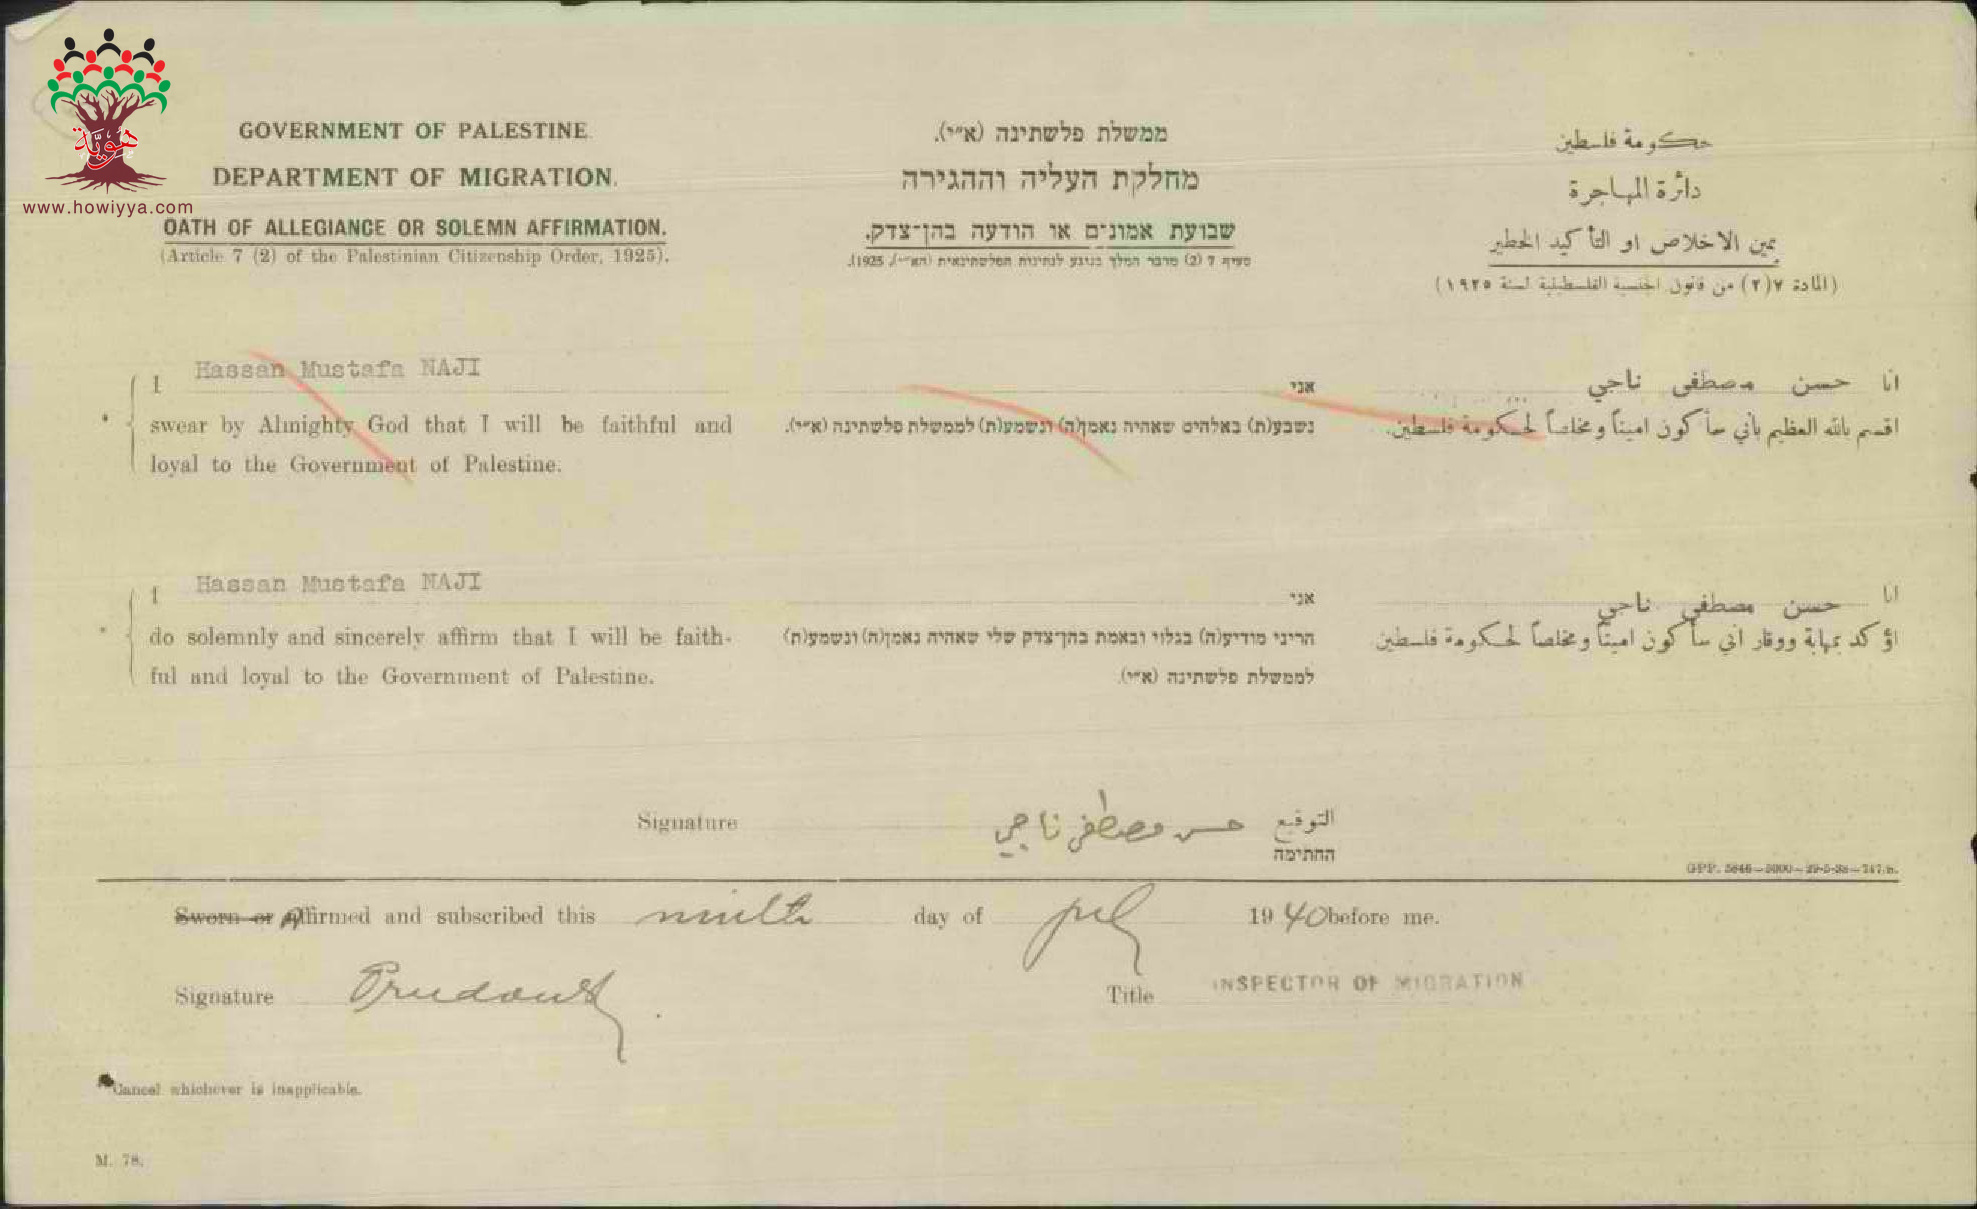 هوية
www.howiyya.com
GOVERNMENT OF PALESTINE.
DEPARTMENT OF MIGRATION.
OATH OF ALLEGIANCE OR SOLEMN AFFIRMATION.
(Article 7 (2) of the Palestinian Citizenship Order, 1925).
ממשלת פלשתינה (א״י).
מחלקת העליה וההגירה
שבועת אמונים או הודעה בהן־צדק.
סעיף 7 (2) מדבר המלך בנוגע לנתינות הפלשתינאית (הא״י), 1925).
حكومة فلسطين
دائرة المهاجرة
يمين الاخلاص او التأكيد الخطير
(المادة ٧(٢) من قانون الجنسية الفلسطينية لسنة ١٩٢٥)
I Hassan Mustafa NAJI
* swear by Almighty God that I will be faithful and
loyal to the Government of Palestine.
אני
נשבע(ת) באלהים שאהיה נאמן(ה) ונשמע(ת) לממשלת פלשתינה (א״י).
انا حسن مصطفى ناجي
اقسم بالله العظيم بأني سأكون اميناً ومخلصاً لحكومة فلسطين.
I Hassan Mustafa NAJI
* do solemnly and sincerely affirm that I will be faith-
ful and loyal to the Government of Palestine.
אני
הריני מודיע(ה) בגלוי ובאמת בהן־צדק שלי שאהיה נאמן(ה) ונשמע(ת)
לממשלת פלשתינה (א״י).
انا حسن مصطفى ناجي
اؤكد بمهابة ووقار اني سأكون اميناً ومخلصاً لحكومة فلسطين
Signature حسن مصطفى ناجي التوقيع
החתימה
GPP. 5846—5000—29-5-38—747/s.
Sworn or Affirmed and subscribed this ninth day of 1940 before me.
Signature Title INSPECTOR OF MIGRATION
*Cancel whichever is inapplicable.
M. 78.